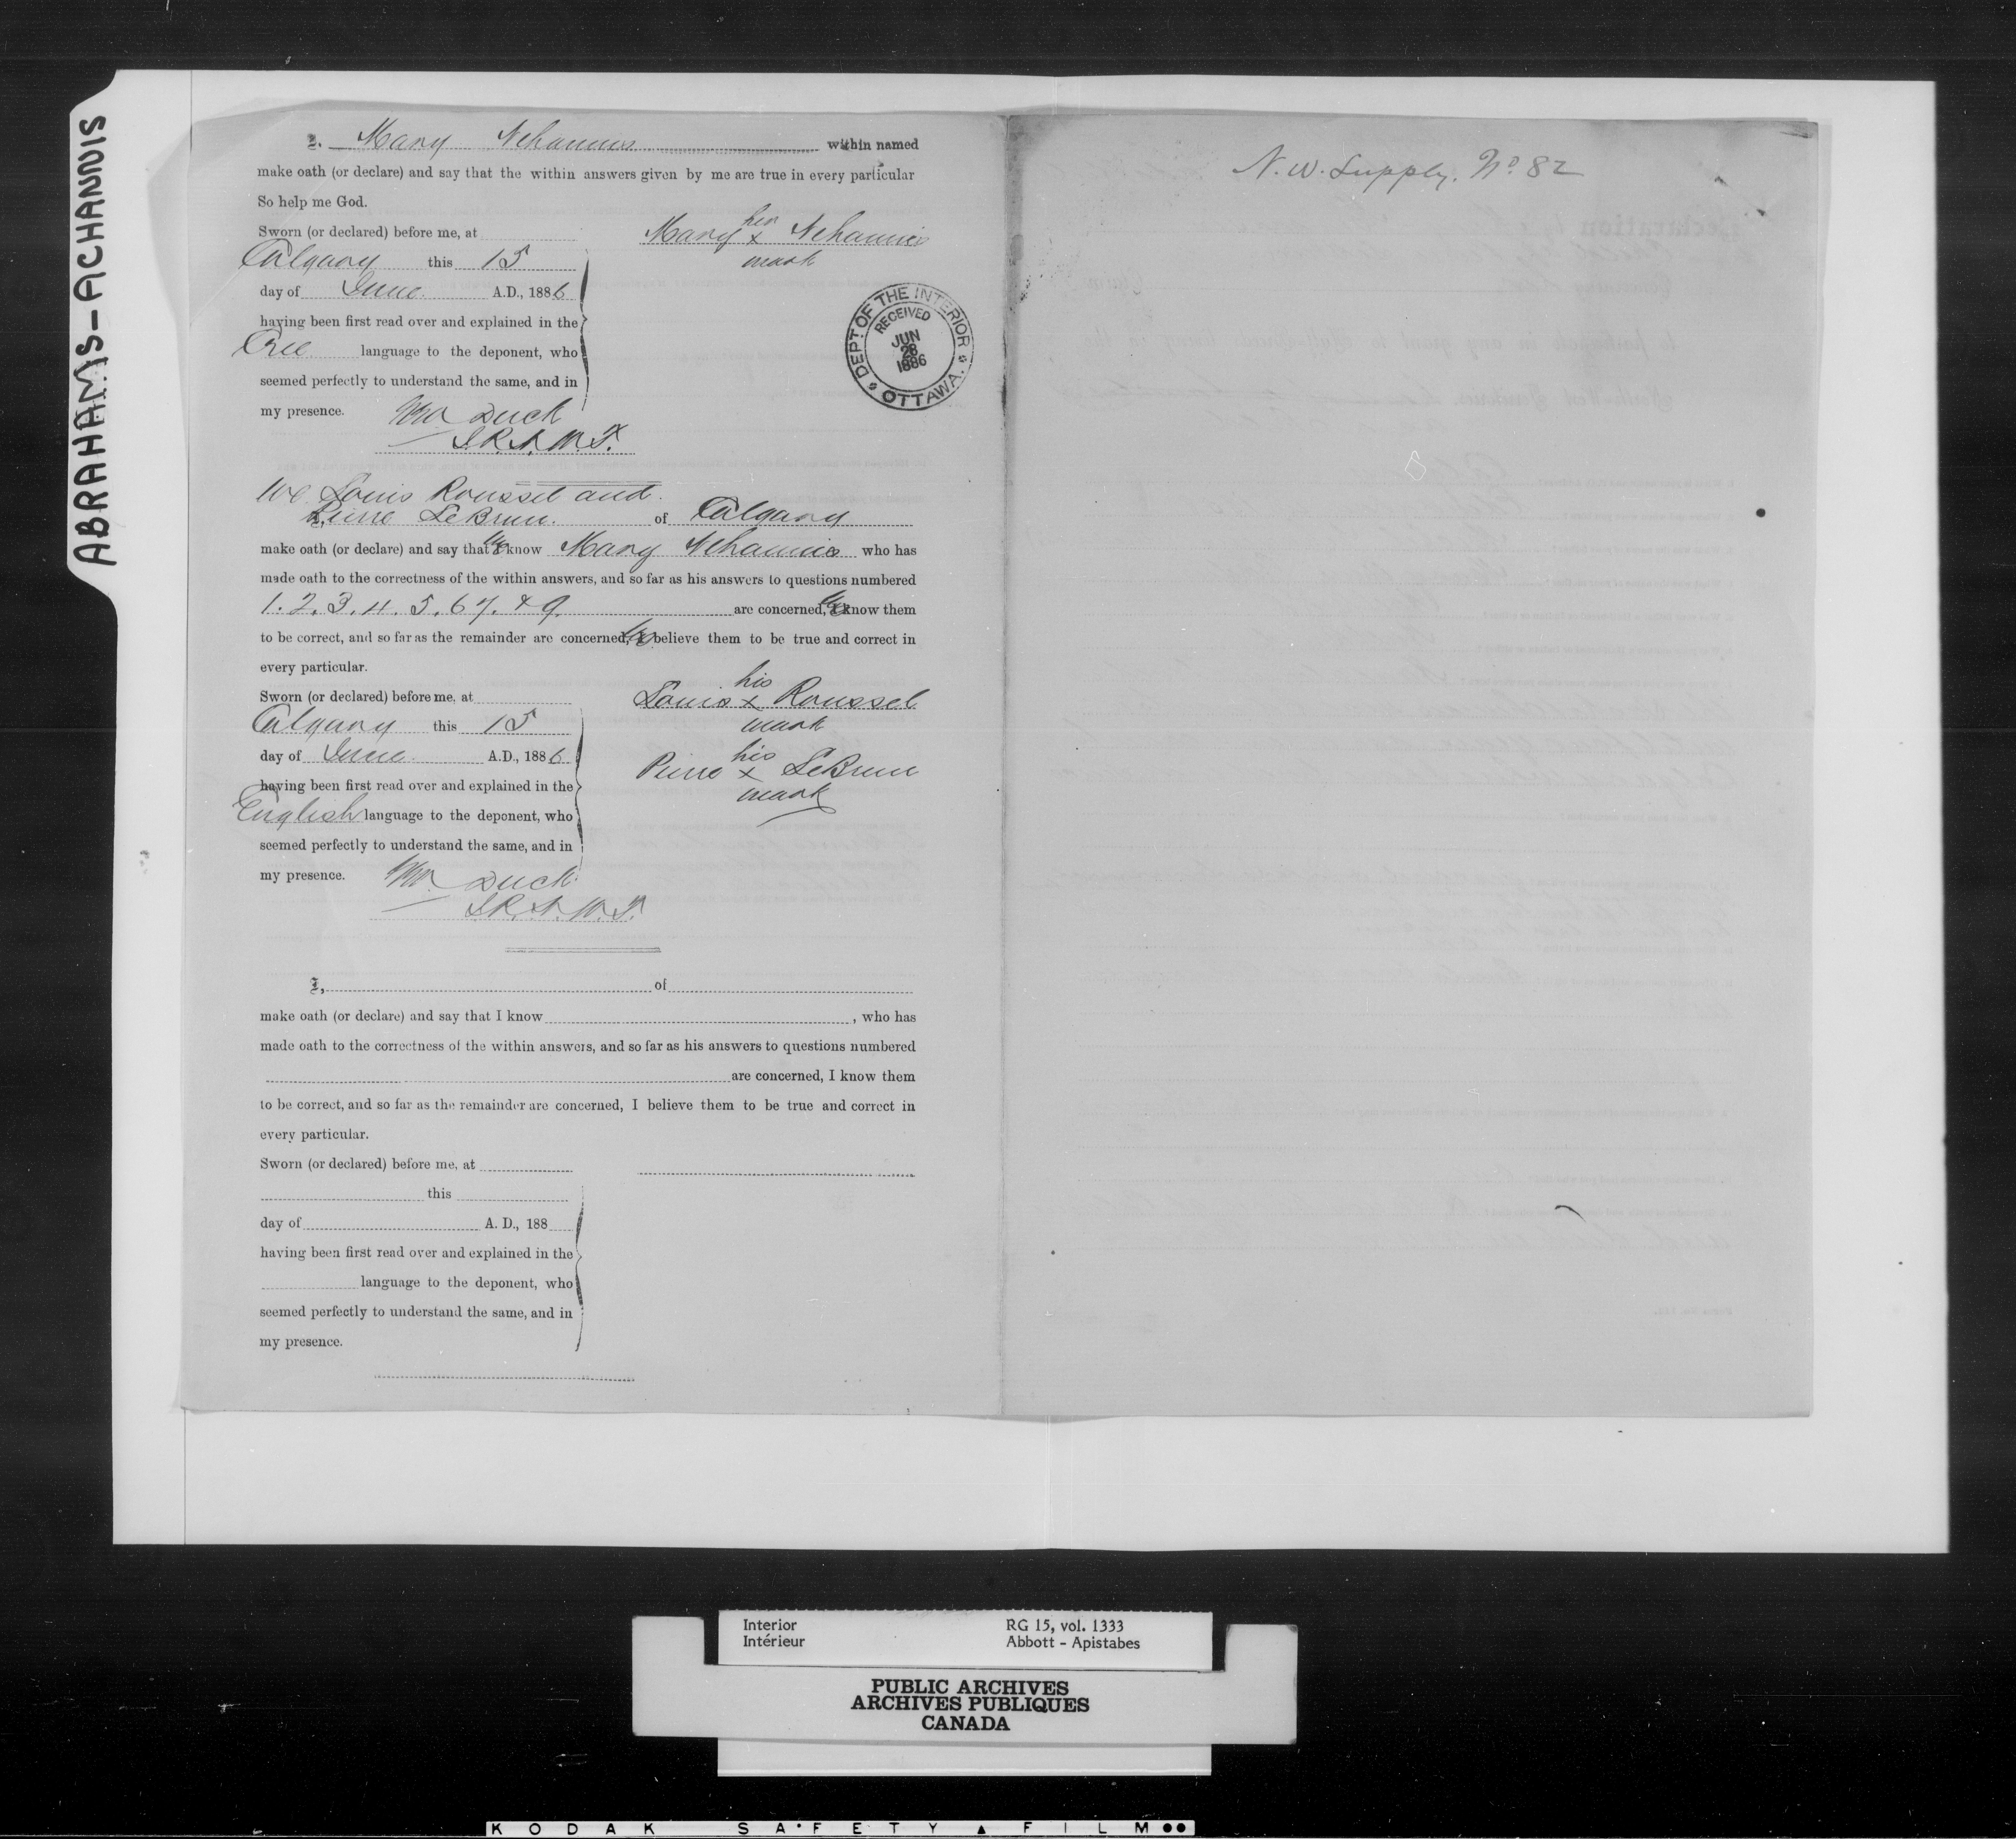 ABRAHAMS-ACHANNIS
I, Mary Achannis within named
make oath (or declare) and say that the within answers given by me are true in every particular
So help me God.
Sworn (or declared) before me, at
Calgary this 15
day of June A.D., 1886
having been first read over and explained in the
Cree language to the deponent, who
seemed perfectly to understand the same, and in
my presence.
Wm Duck
her
Mary x Achannis
mark
DEPT OF THE INTERIOR
RECEIVED
JUN
28
1886
OTTAWA.
We Louis Roussel and
Pierre LeBrun of Calgary
make oath (or declare) and say that We know Mary Achannis who has
made oath to the correctness of the within answers, and so far as his answers to questions numbered
1. 2. 3. 4. 5. 6 7. & 9. are concerned, We know them
to be correct, and so far as the remainder are concerned, We believe them to be true and correct in
every particular.
Sworn (or declared) before me, at
Calgary this 15
day of June A.D., 1886
having been first read over and explained in the
English language to the deponent, who
seemed perfectly to understand the same, and in
my presence.
Wm Duck
his
Louis x Roussel
mark
his
Pierre x LeBrun
mark
I, of
make oath (or declare) and say that I know , who has
made oath to the correctness of the within answers, and so far as his answers to questions numbered
are concerned, I know them
to be correct, and so far as the remainder are concerned, I believe them to be true and correct in
every particular.
Sworn (or declared) before me, at
this
day of A. D., 188
having been first read over and explained in the
language to the deponent, who
seemed perfectly to understand the same, and in
my presence.
N. W. Supply. No 82
Interior
Intérieur
RG 15, vol. 1333
Abbott - Apistabes
PUBLIC ARCHIVES
ARCHIVES PUBLIQUES
CANADA
KODAK SAFETY FILM